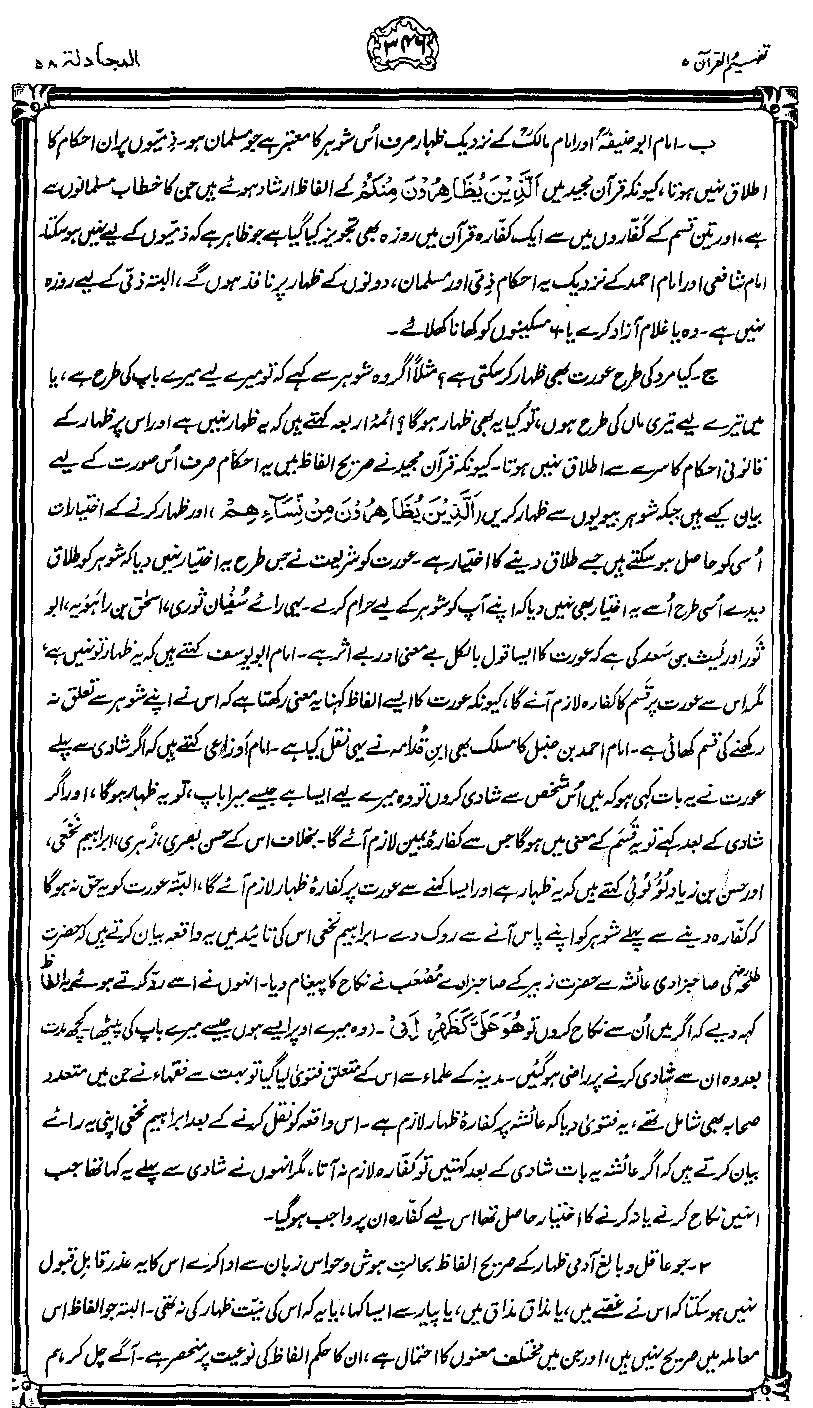 تفہیم القرآن ۵
۳۴۶
المجادلۃ ۵۸
ب۔ امام ابو حنیفہؒ اور امام مالکؒ کے نزدیک ظہار صرف اُس شوہر کا معتبر ہے جو مسلمان ہو۔ ذمیّوں پر ان احکام کا
اطلاق نہیں ہوتا، کیونکہ قرآن مجید میں اَلَّذِیْنَ یُظَاہِرُوْنَ مِنْکُمْ کے الفاظ ارشاد ہوئے ہیں جن کا خطاب مسلمانوں سے
ہے، اور تین قسم کے کفّاروں میں سے ایک کفّارہ قرآن میں روزہ بھی تجویز کیا گیا ہے جو ظاہر ہے کہ ذمیّوں کے لیے نہیں ہو سکتا۔
امام شافعی اور امام احمد کے نزدیک یہ احکام ذِمّی اور مسلمان، دونوں کے ظہار پر نافذ ہوں گے، البتہ ذمّی کے لیے روزہ
نہیں ہے۔ وہ یا غلام آزاد کرے یا ۶۰ مسکینوں کو کھانا کھلائے۔
ج۔ کیا مرد کی طرح عورت بھی ظہار کر سکتی ہے؟ مثلاً اگر وہ شوہر سے کہے کہ تو میرے لیے میرے باپ کی طرح ہے، یا
میں تیرے لیے تیری ماں کی طرح ہوں، تو کیا یہ بھی ظہار ہوگا؟ ائمۂ اربعہ کہتے ہیں کہ یہ ظہار نہیں ہے اور اس پر ظہار کے
قانونی احکام کا سرے سے اطلاق نہیں ہوتا۔ کیونکہ قرآن مجید نے صریح الفاظ میں یہ احکام صرف اُس صورت کے لیے
بیان کیے ہیں جبکہ شوہر بیویوں سے ظہار کریں (اَلَّذِیْنَ یُظَاہِرُوْنَ مِنْ نِّسَآءِہِمْ)، اور ظہار کرنے کے اختیارات
اُسی کو حاصل ہو سکتے ہیں جسے طلاق دینے کا اختیار ہے۔ عورت کو شریعت نے جس طرح یہ اختیار نہیں دیا کہ شوہر کو طلاق
دیدے اُسی طرح اُسے یہ اختیار بھی نہیں دیا کہ اپنے آپ کو شوہر کے لیے حرام کرلے۔ یہی رائے سُفیان ثوری، اسحٰق بن راہَوَیہ، ابو
ثَور اور لَیث بن سَعد کی ہے کہ عورت کا ایسا قول بالکل بے معنی اور بے اثر ہے۔ امام ابو یوسف کہتے ہیں کہ یہ ظہار تو نہیں ہے،
مگر اس سے عورت پر قسم کا کفارہ لازم آئے گا، کیونکہ عورت کا ایسے الفاظ کہنا یہ معنی رکھتا ہے کہ اس نے اپنے شوہر سے تعلق نہ
رکھنے کی قسم کھائی ہے۔ امام احمد بن حنبل کا مسلک بھی ابن قُدامہ نے یہی نقل کیا ہے۔ امام اَوزاعی کہتے ہیں کہ اگر شادی سے پہلے
عورت نے یہ بات کہی ہو کہ میں اُس شخص سے شادی کروں تو وہ میرے لیے ایسا ہے جیسے میرا باپ، تو یہ ظہار ہوگا، اور اگر
شادی کے بعد کہے تو یہ قَسَم کے معنی میں ہوگا جس سے کفارۂ یمین لازم آئے گا۔ بخلاف اس کے حسن بصری، زُہری، ابراہیم نَخَعی،
اور حسن بن زیاد لُؤلُوئی کہتے ہیں کہ یہ ظہار ہے اور ایسا کہنے سے عورت پر کفارۂ ظہار لازم آئے گا، البتّہ عورت کو یہ حق نہ ہوگا
کہ کفّارہ دینے سے پہلے شوہر کو اپنے پاس آنے سے روک دے۔ ابراہیم نخعی اس کی تائید میں یہ واقعہ بیان کرتے ہیں کہ حضرت
طلحہؓ کی صاحبزادی عائشہ سے حضرت زبیر کے صاحبزادے مُصْعَب نے نکاح کا پیغام دیا۔ انہوں نے اسے رد کرتے ہوئے یہ الفاظ
کہہ دیے کہ اگر میں اُن سے نکاح کروں تو ھُوَ عَلَیَّ کَظَھْرِ اَبِیْ۔ (وہ میرے اوپر ایسے ہوں جیسے میرے باپ کی پیٹھ)۔ کچھ مدت
بعد وہ ان سے شادی کرنے پر راضی ہوگئیں۔ مدینہ کے علماء سے اس کے متعلق فتویٰ لیا گیا تو بہت سے فقہاء نے جن میں متعدد
صحابہ بھی شامل تھے، یہ فتویٰ دیا کہ عائشہ پر کفارۂ ظہار لازم ہے۔ اس واقعہ کو نقل کرنے کے بعد ابراہیم نخعی اپنی یہ رائے
بیان کرتے ہیں کہ اگر عائشہ یہ بات شادی کے بعد کہتیں تو کفارہ لازم نہ آتا، مگر انہوں نے شادی سے پہلے یہ کہا تھا جب
انہیں نکاح کرنے یا نہ کرنے کا اختیار حاصل تھا اس لیے کفارہ ان پر واجب ہو گیا۔
۳۔ جو عاقل و بالغ آدمی ظہار کے صریح الفاظ بحالتِ ہوش و حواس زبان سے ادا کرے اس کا یہ عذر قابلِ قبول
نہیں ہو سکتا کہ اس نے غصّے میں، یا مذاق مذاق میں، یا پیار سے ایسا کہا، یا یہ کہ اس کی نیّت ظہار کی نہ تھی۔ البتہ جو الفاظ اس
معاملہ میں صریح نہیں ہیں، اور جن میں مختلف معنوں کا احتمال ہے، ان کا حکم الفاظ کی نوعیت پر منحصر ہے۔ آگے چل کر ہم